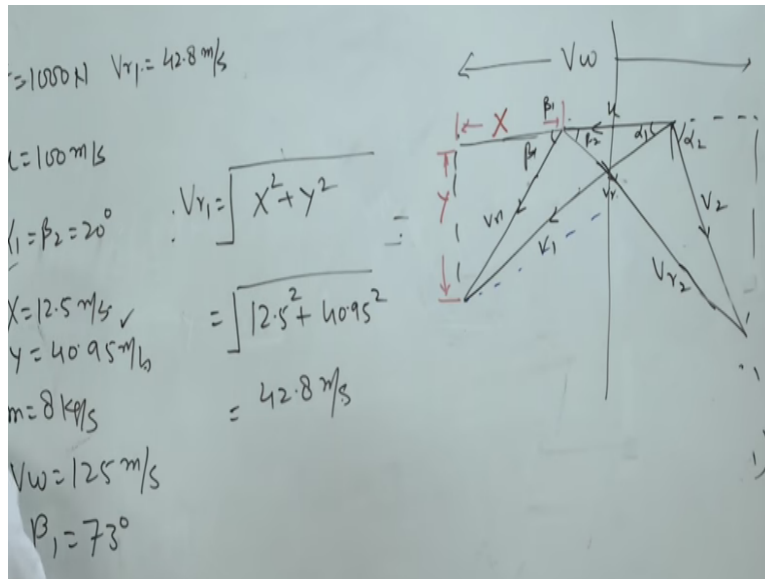 =1000N Vr₁ = 42.8 m/s
=100 m/s
α₁ = β₂ = 20°
X = 12.5 m/s ✓
Y = 40.95 m/s
m = 8 kg/s
Vw = 125 m/s
β₁ = 73°
: Vr₁ = √(X² + Y²)
= √(12.5² + 40.95²)
= 42.8 m/s
Vw
X
β₁
u
β₁
β₂
α₁
α₂
Y
Vr₁
V₁
V₂
Vr₂